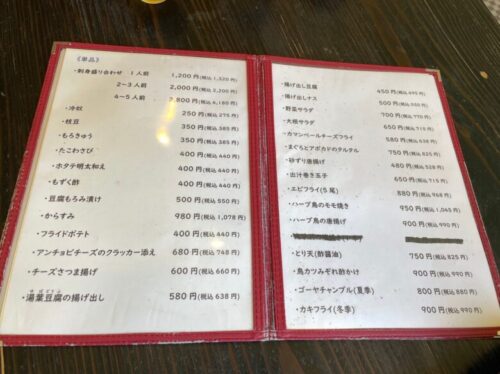 《単品》
・刺身盛り合わせ 1人前 1,200円(税込1,320円)
2~3人前 2,000円(税込2,200円)
4~5人前 3,800円(税込4,180円)
・冷奴 250円(税込275円)
・枝豆 350円(税込385円)
・もろきゅう 350円(税込385円)
・たこわさび 400円(税込440円)
・ホタテ明太和え 400円(税込440円)
・もずく酢 400円(税込440円)
・豆腐もろみ漬け 500円(税込550円)
・からすみ 980円(税込1,078円)
・フライドポテト 400円(税込440円)
・アンチョビチーズのクラッカー添え 680円(税込748円)
・チーズさつま揚げ 600円(税込660円)
・湯葉豆腐の揚げ出し 580円(税込638円)
・揚げ出し豆腐 450円(税込495円)
・揚げ出しナス 500円(税込550円)
・野菜サラダ 700円(税込770円)
・大根サラダ 650円(税込715円)
・カマンベールチーズフライ 580円(税込638円)
・まぐろとアボカドのタルタル 750円(税込825円)
・砂ずり唐揚げ 480円(税込528円)
・出汁巻き玉子 650円(税込715円)
・エビフライ(5尾) 880円(税込968円)
・ハーブ鳥のモモ焼き 950円(税込1,045円)
・ハーブ鳥の唐揚げ 900円(税込990円)
・とり天(酢醤油) 750円(税込825円)
・鳥カツみぞれ酢かけ 900円(税込990円)
・ゴーヤチャンプル(夏季) 800円(税込880円)
・カキフライ(冬季) 900円(税込990円)